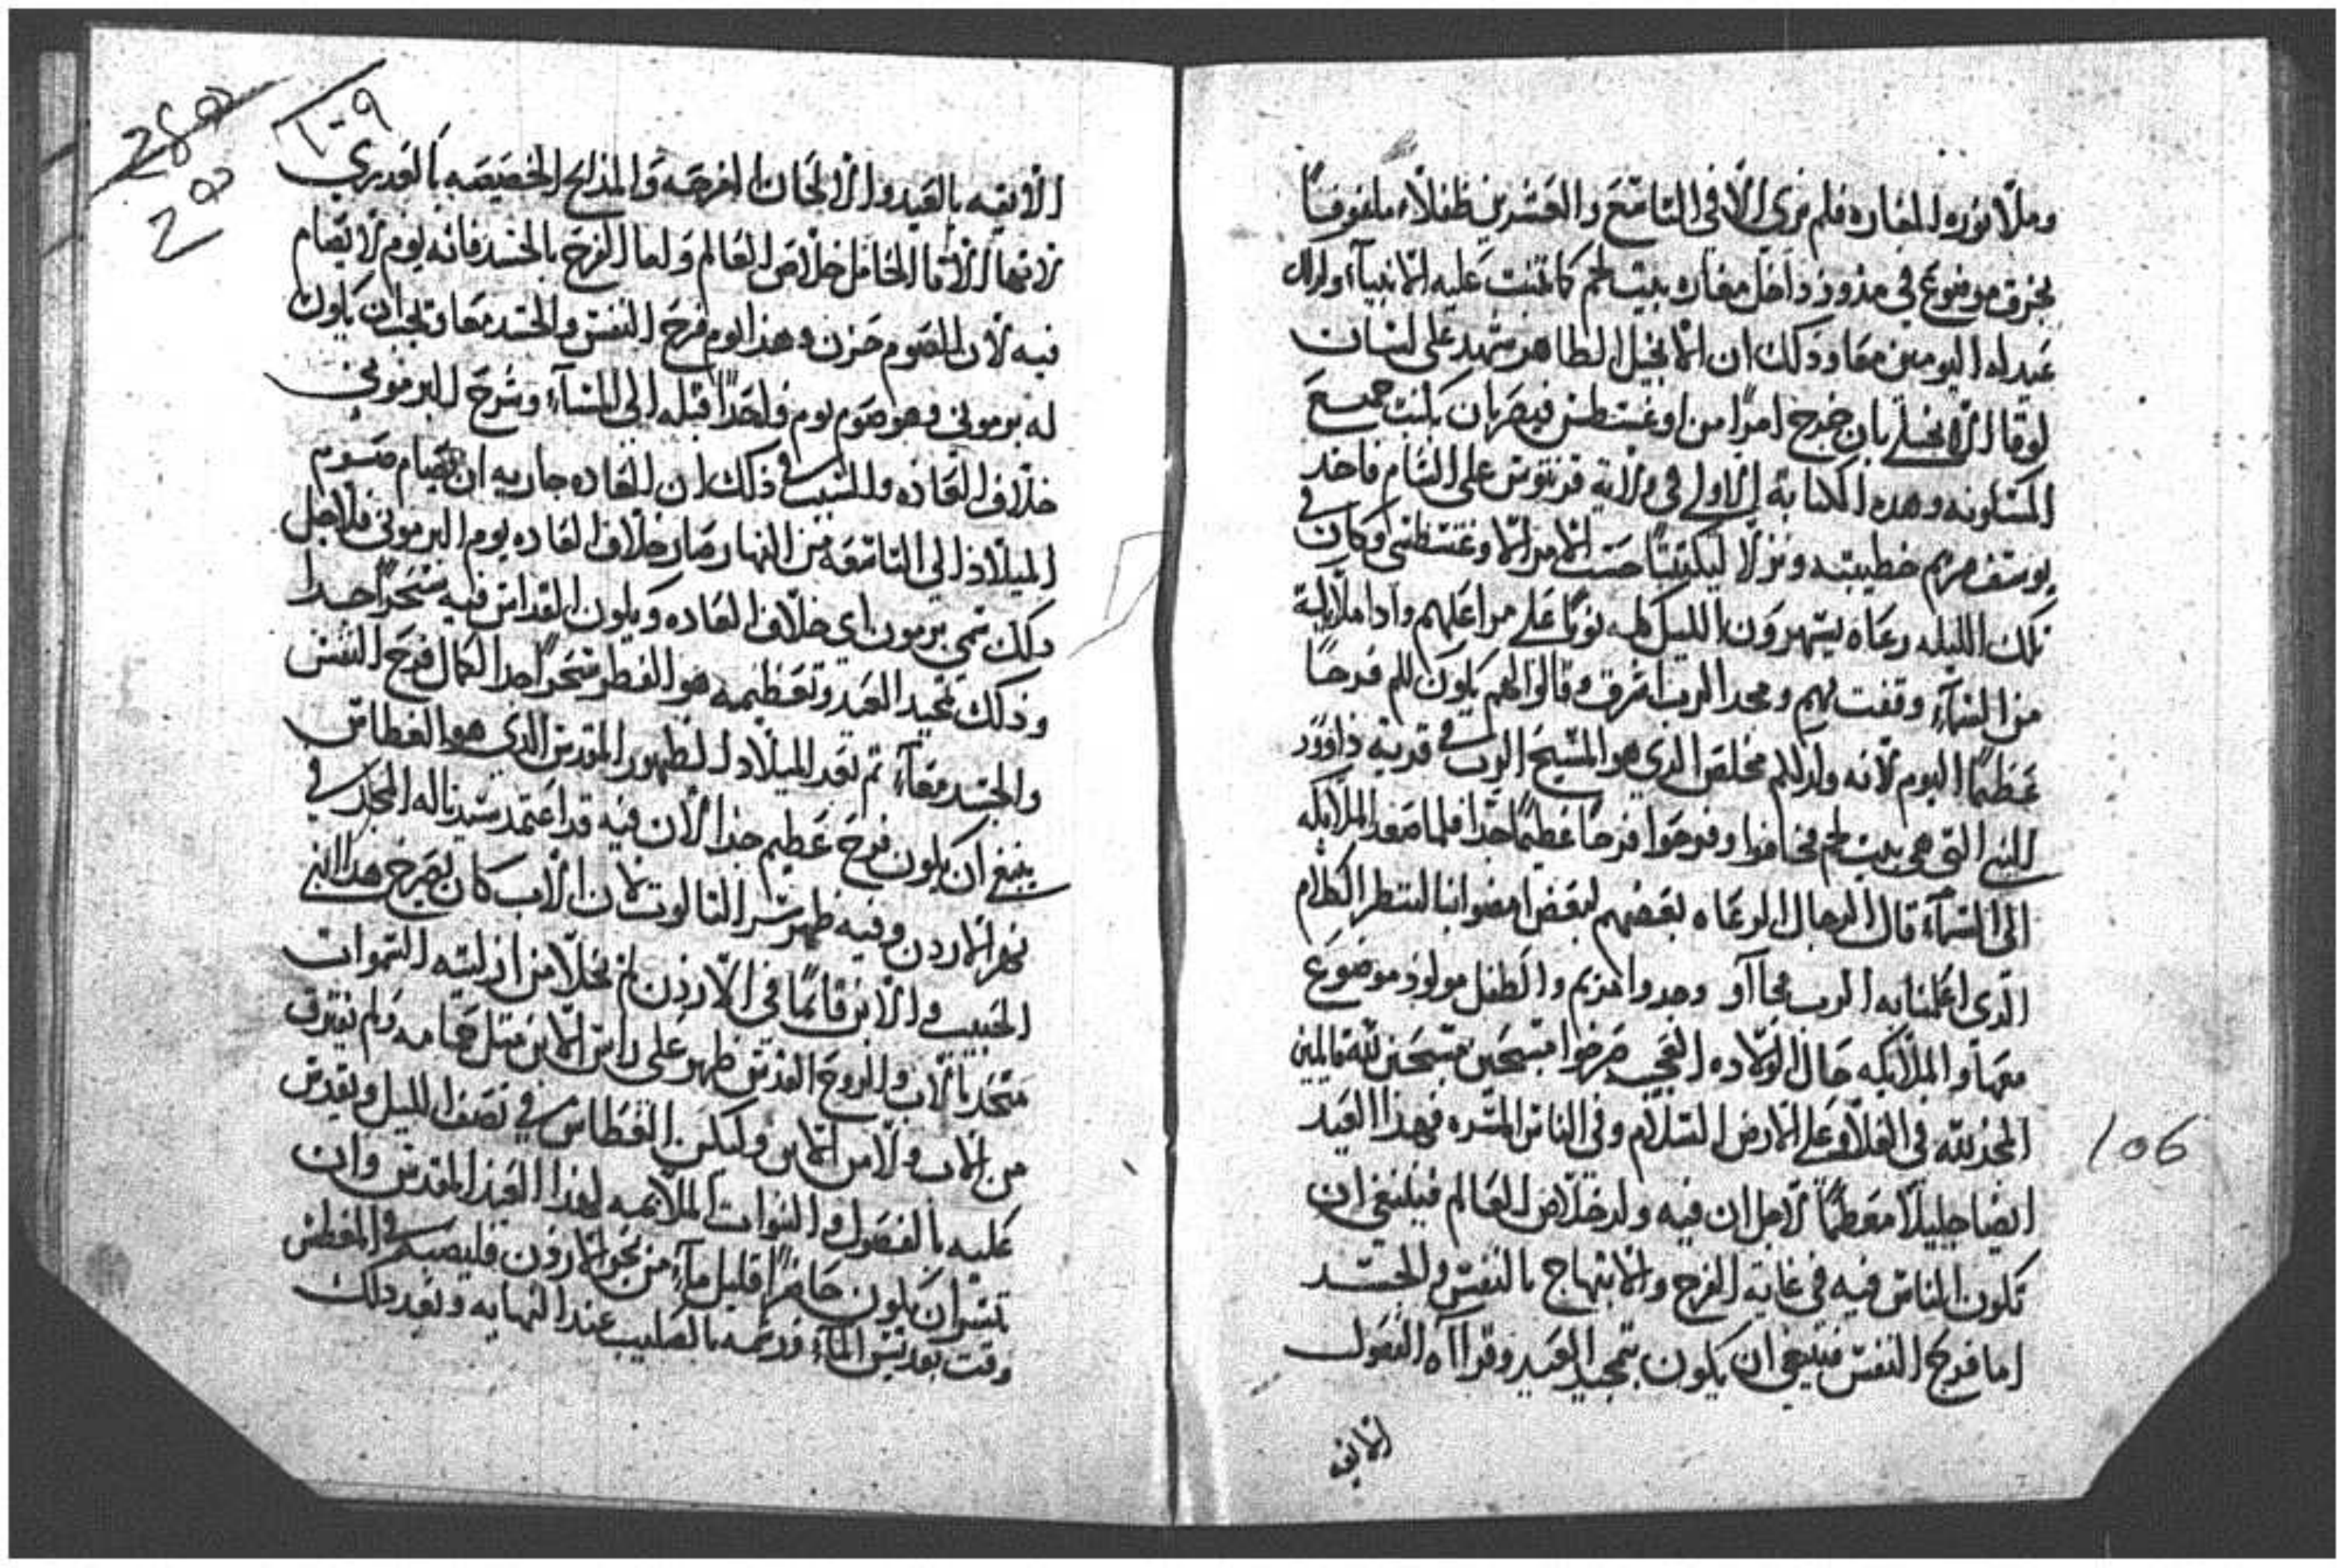 وملا نوره المغاره فلم نرى الا في التاسع والعشرين طفلاء ملفوفاً
بخرق موضوع في مدود داخل مغارة بيت لحم كما تنبت عليه الانبياء ولدلك
عيد له اليومين معا ودلك ان الانجيل الطاهر شهد على لسان
لوقا الانجيلي بان خرج امراً من اوغسطس قيصر بان يكتب جميع
المسكونه وهده الكتابة الاولى في ولاية قرنتوس على الشام فاخد
يوسف مريم خطيبته ونزلا ليكتتبا حسب الامر الاوغسطسي وكان في
تلك الليله رعاه يسهرون الليل كله نوباً على مراعيهم وادا ملايكة
من السماء وقفت بهم ومجد الرب اشرق وقالوا لهم يكون لكم فرحاً
عظيماً اليوم لانه ولد لكم مخلص الدي هو المسيح الرب في قرية داوود
النبي التي هي بيت لحم فخافوا وفرحوا فرحا عظيماً جدا فلما صعد الملايكه
الى السماء قال الرجال الرعاه بعضهم لبعض امضوا بنا لننظر الكلام
الدي اعلمنا به الرب فجاآو وجدوا مريم والطفل مولود موضوع
معها والملايكه حال الولاده العجيبه صرخوا مسبحين لله قايلين
المجد لله في العلا وعلى الارض السلام وفي الناس المسره فهذا العيد
ايضا جليلا معظماً لاجل ان فيه ولد خلاص العالم فينبغي ان
تكون الناس فيه في غاية الفرح والابتهاج بالنفس والجسد
اما فرح النفس فينبغي ان يكون بتمجيد العيد وقراآه الفصول
الايقه
106
١٠٩
الايقيه بالعيد والالحان المفرحه والمدايح الخصيصه بالعدري
لانها الام الحامل خلاص العالم ولما الفرح بالجسد فانه يوم لا يصام
فيه لان الصوم حزن وهذا يوم فرح النفس والجسد معا ويجب ان يكون
له برموني وهو صوم يوم واحداً قبله الى المساء وشرح البرموني
خلاف العاده والسبب في ذلك ان العاده جاريه ان يصام صوم
الميلاد الى التاسعه من النهار صار خلاف العاده يوم البرموني فلاجل
دلك سمي برمون اي خلاف العاده ويكون القداس فيه سحراً جدا
وذلك تمجيد العيد وتعظيمه هو الفطر سحراً جدا لكمال فرح النفس
والجسد معآ ثم بعد الميلاد الظهور المقدس الدي هو الغطاس
ينبغي ان يكون فرح عظيم جدا لان فيه قد اعتمد سيدنا له المجد في
نهر الاردن وفيه ظهر سر الثالوت لان الاب كان يصرخ هدا ابني
الحبيب والابن قائماً في الاردن لم تخلا من ازليته السموات
متحد بالاب والروح القدس ظهر على راس الابن متل حمامه ولم يفترق
من الاب ولا من الابن وليكن الغطاس في نصف الليل ويقدس
عليه بالفصول والنبوات الملايمه لهذا العيد المقدس وان
تيسر ان يكون حاضراً قليل ماء من نهر الاردن فليصبه في المغطس
وقت تقديس الماء ورشمه بالصليب عند النهايه وبعد دلك